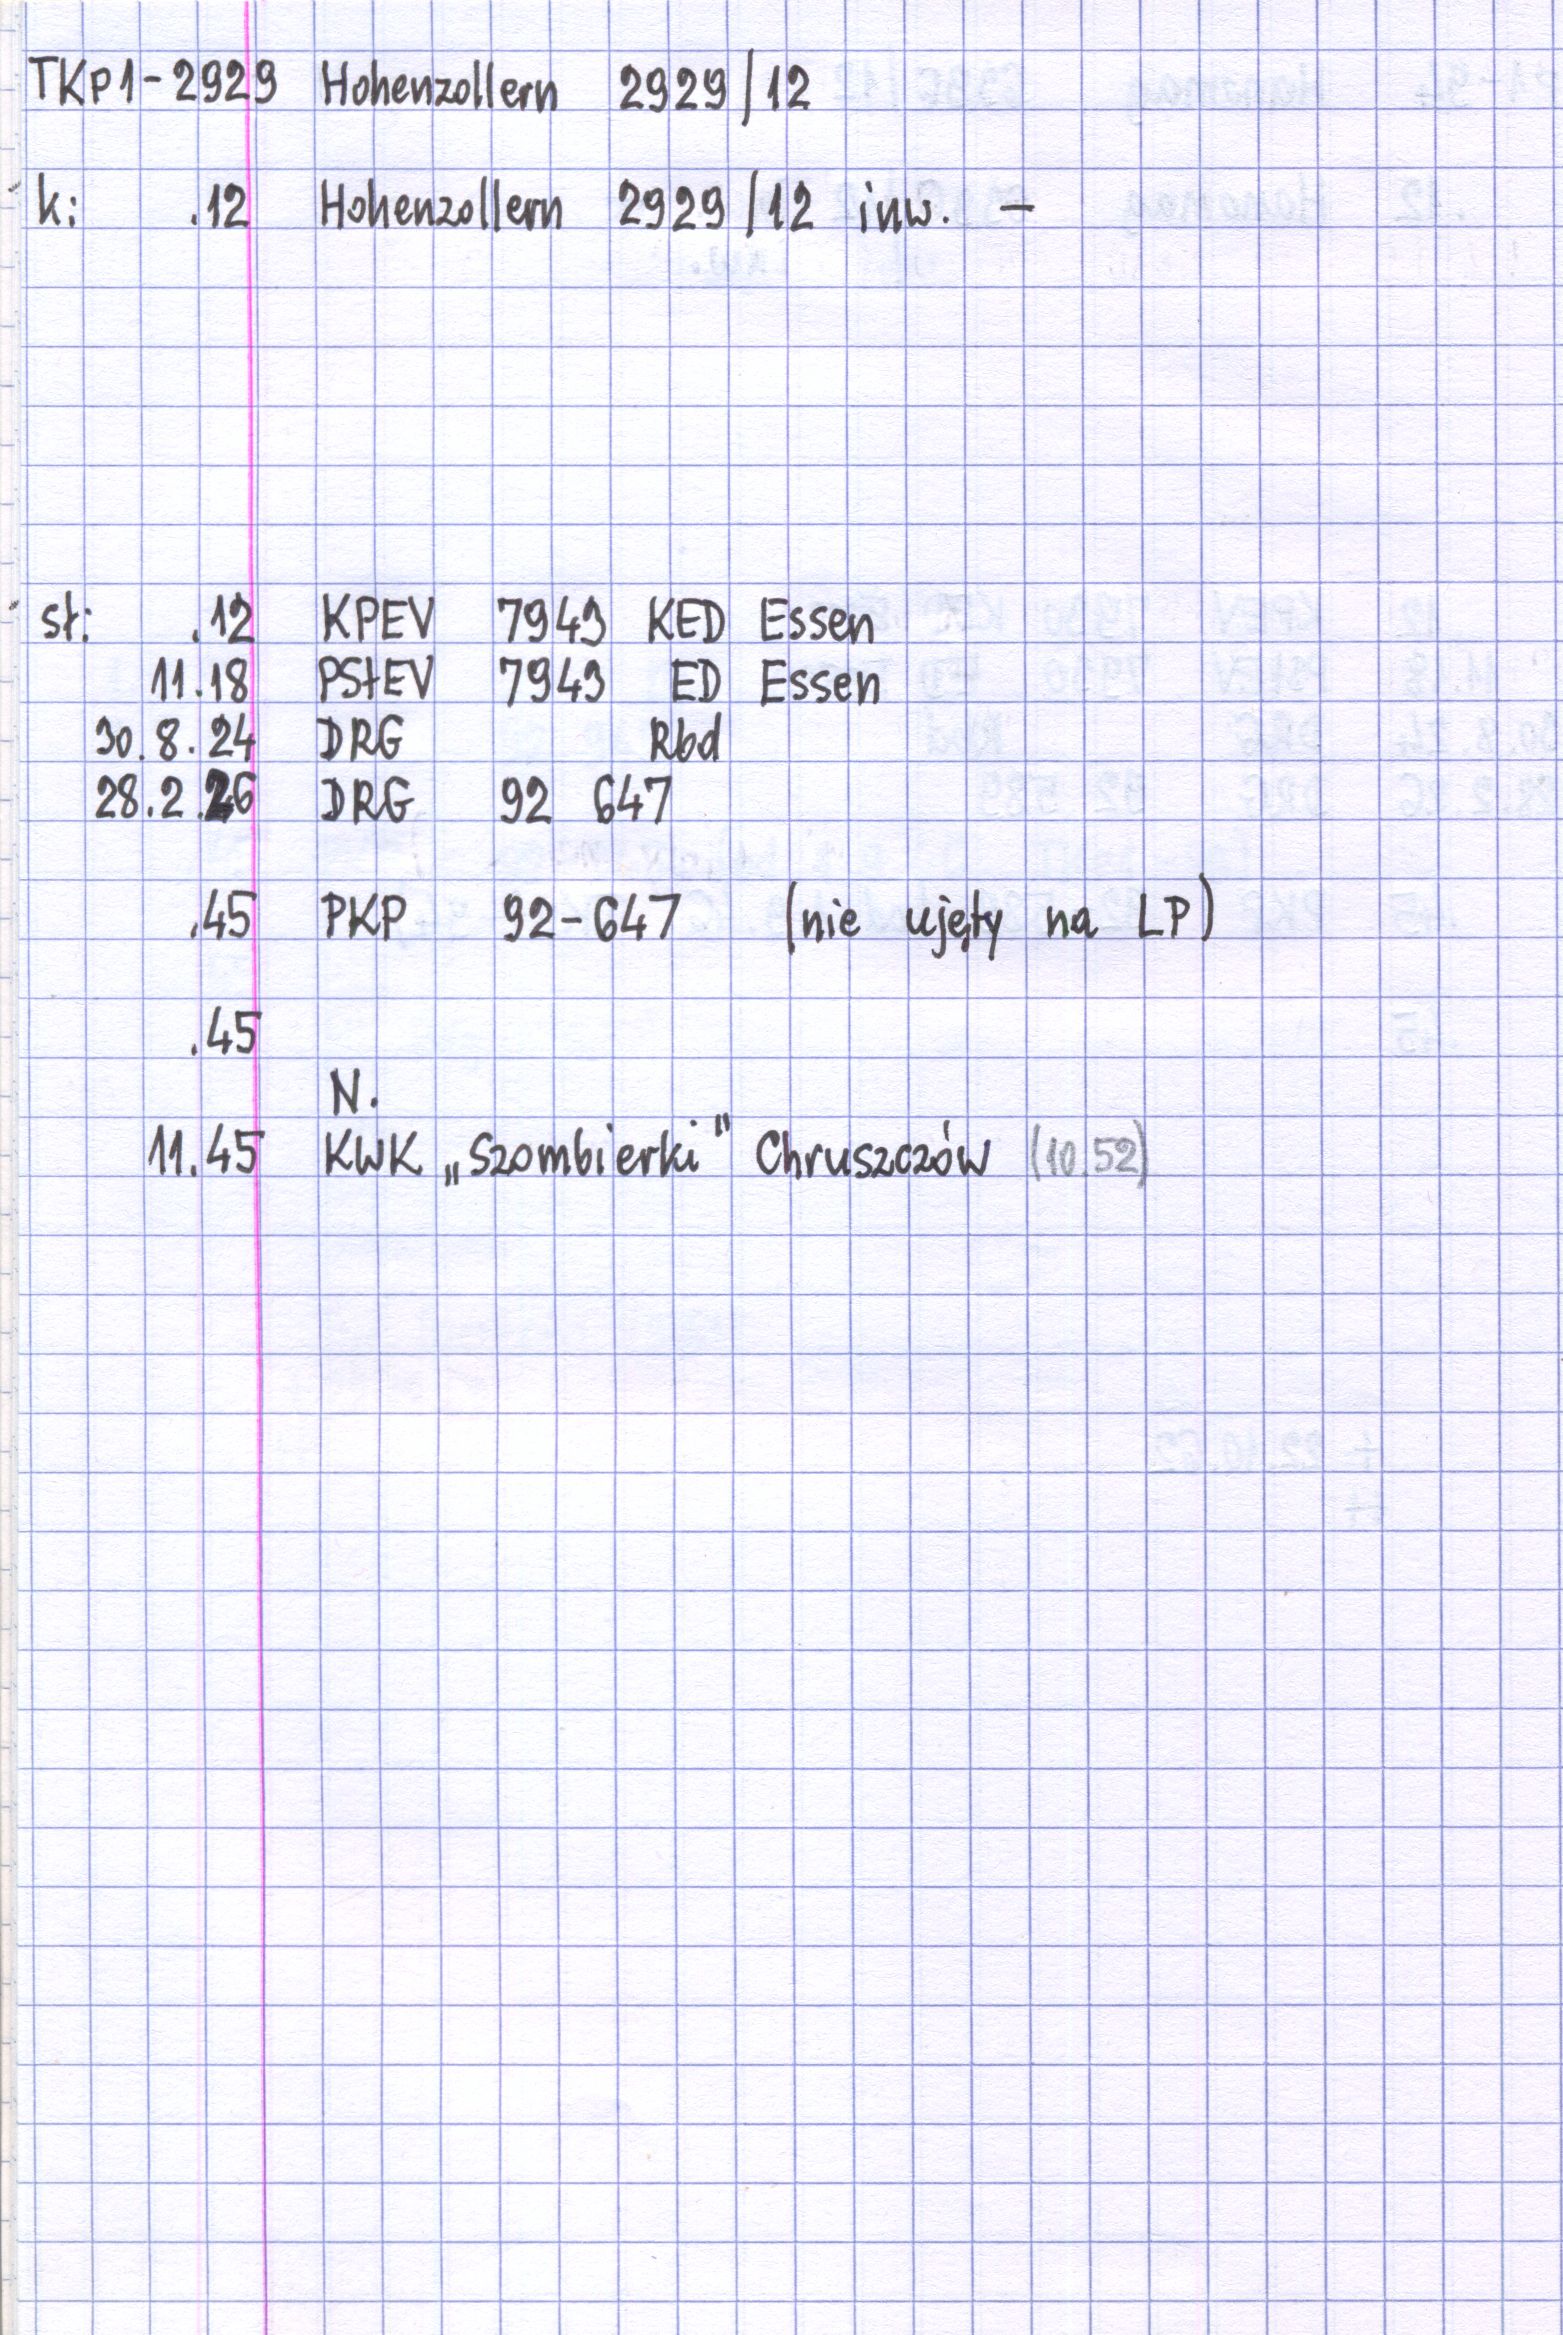 TKp1-2929 Hohenzollern 2929/12
k: .12 Hohenzollern 2929/12 inw. -
st: .12 KPEV 7943 KED Essen
11.18 PStEV 7943 ED Essen
30.8.24 DRG Rbd
28.2.26 DRG 92 647
.45 PKP 92-647 (nie ujęty na LP)
.45
N.
11.45 KWK „Szombierki" Chruszczów (10.52)